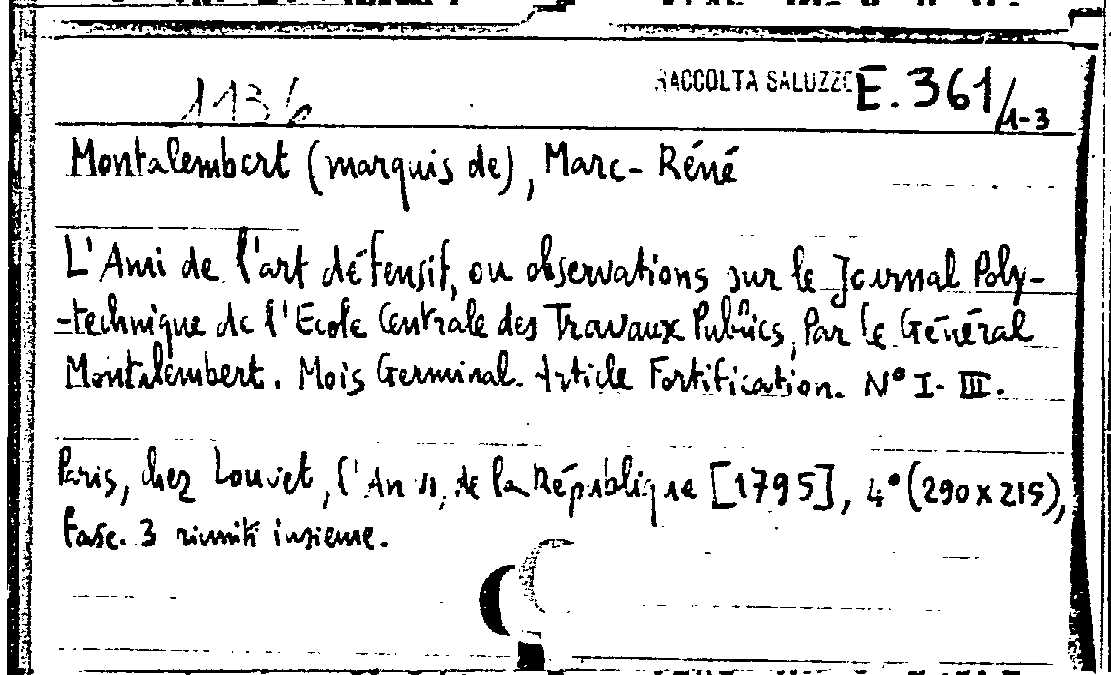 1136
RACCOLTA SALUZZO E. 361/1-3
Montalembert (marquis de), Marc-Réné
L'Ami de l'art défensif, ou observations sur le Journal Poly-
-technique de l'Ecole Centrale des Travaux Publics, Par le Général
Montalembert. Mois Germinal. Article Fortification. N° I-III.
Paris, chez Louvet, l'An de la République [1795], 4° (290x215),
Fasc. 3 riuniti insieme.